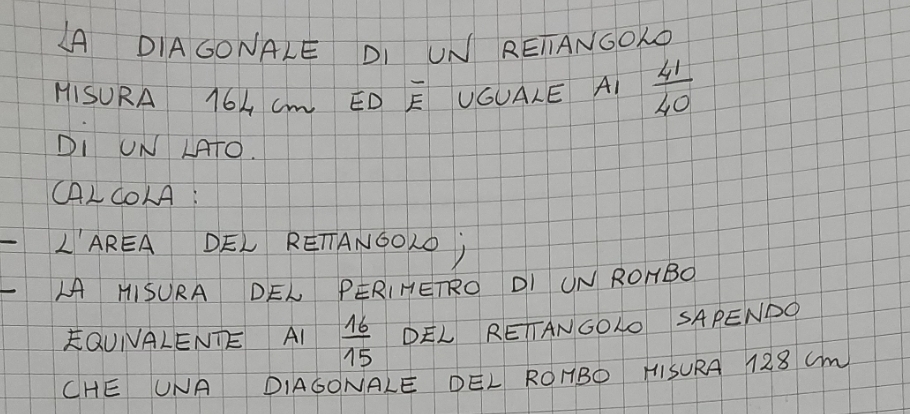 LA DIAGONALE DI UN RETTANGOLO
MISURA 164 cm ED È UGUALE AI 41/40
DI UN LATO.
CALCOLA:
- L'AREA DEL RETTANGOLO;
- LA MISURA DEL PERIMETRO DI UN ROMBO
EQUIVALENTE AI 16/15 DEL RETTANGOLO SAPENDO
CHE UNA DIAGONALE DEL ROMBO MISURA 128 cm